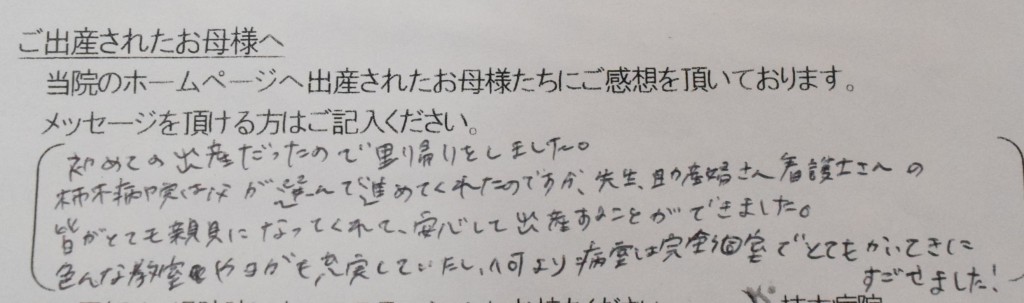 ご出産されたお母様へ
当院のホームページへ出産されたお母様たちにご感想を頂いております。
メッセージを頂ける方はご記入ください。
初めての出産だったので里り帰りをしました。
柿木病院は父が選んで進めてくれたのですが、先生、助産婦さん看護士さんの
皆がとても親身になってくれて、安心して出産することができました。
色んな教室やヨガも充実していたし、何より病室は完全個室でとてもかいてきに
すごせました!